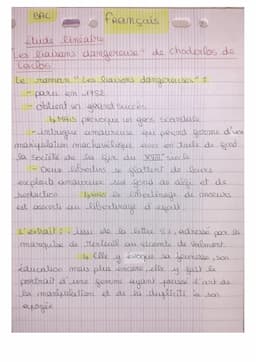 BAC
Français
Étude linéaire
"Les liaisons dangereuses" de Choderlos de
Laclos
Le roman "Les liaisons dangereuses" :
- paru en 1782
- obtient un grand succès
↳ MAIS provoque un gros scandale
- intrigue amoureuse qui prend forme d'une
manipulation machiavélique avec en toile de fond
la société de la fin du XVIIIe siècle
- Deux libertins se flattent de leurs
exploits amoureux sur fond de défi et de
séduction libertinage de moeurs
est associé au libertinage d'esprit
L'extrait : issu de la lettre 81, adressée par la
marquise de Merteuil au vicomte de Valmont.
↳ Elle y évoque sa jeunesse, son
éducation mais plus encore, elle y fait le
portrait d'une femme ayant poussé l'art de
la manipulation et de la duplicité à son
apogée